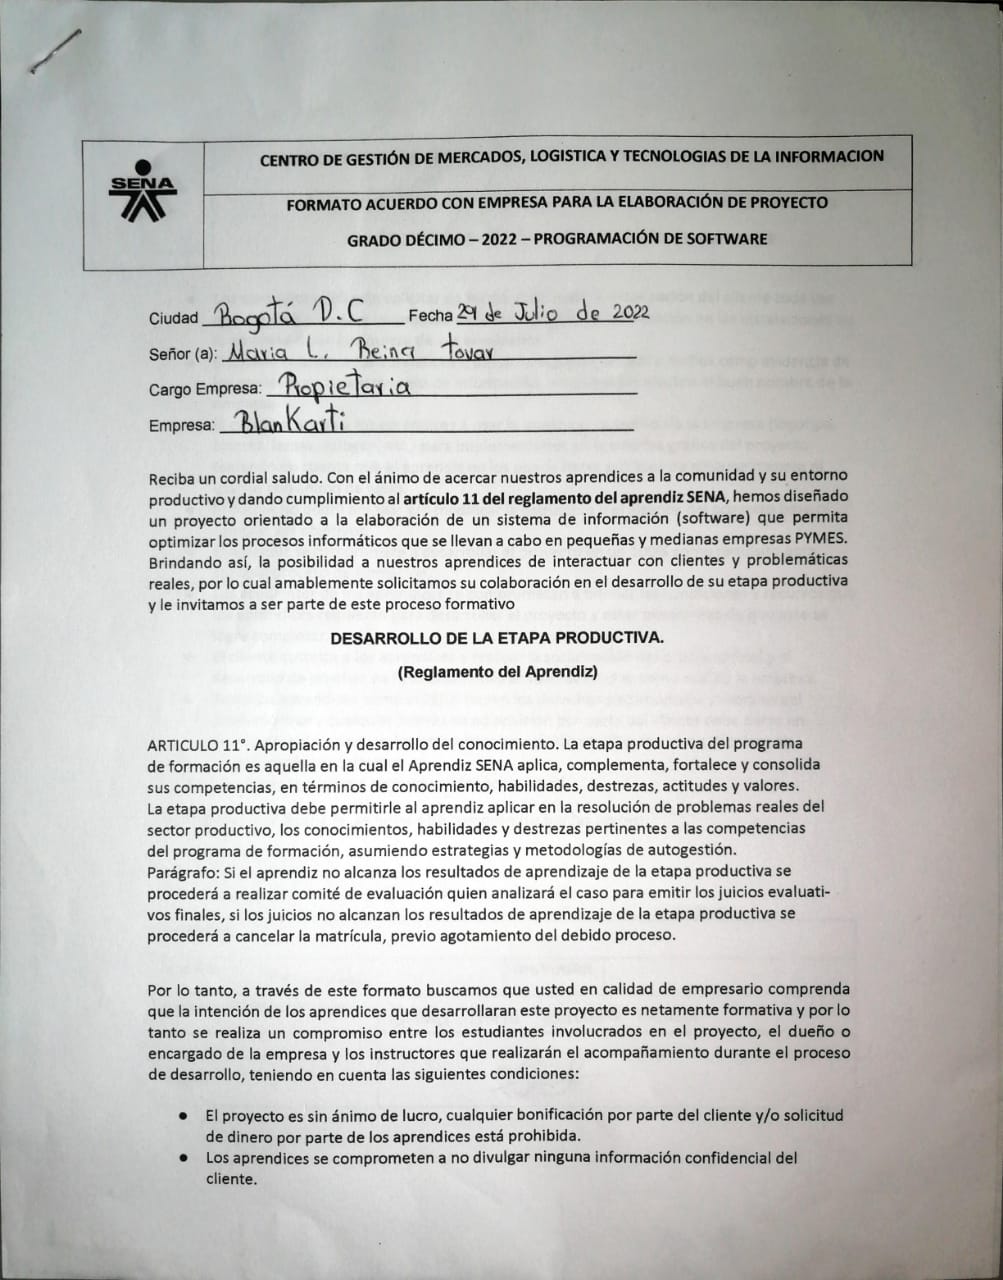 SENA
CENTRO DE GESTIÓN DE MERCADOS, LOGISTICA Y TECNOLOGIAS DE LA INFORMACION
FORMATO ACUERDO CON EMPRESA PARA LA ELABORACIÓN DE PROYECTO
GRADO DÉCIMO – 2022 – PROGRAMACIÓN DE SOFTWARE
Ciudad Bogotá D.C Fecha 29 de Julio de 2022
Señor (a): Maria L. Reina tovar
Cargo Empresa: Propietaria
Empresa: BlanKarti
Reciba un cordial saludo. Con el ánimo de acercar nuestros aprendices a la comunidad y su entorno
productivo y dando cumplimiento al artículo 11 del reglamento del aprendiz SENA, hemos diseñado
un proyecto orientado a la elaboración de un sistema de información (software) que permita
optimizar los procesos informáticos que se llevan a cabo en pequeñas y medianas empresas PYMES.
Brindando así, la posibilidad a nuestros aprendices de interactuar con clientes y problemáticas
reales, por lo cual amablemente solicitamos su colaboración en el desarrollo de su etapa productiva
y le invitamos a ser parte de este proceso formativo
DESARROLLO DE LA ETAPA PRODUCTIVA.
(Reglamento del Aprendiz)
ARTICULO 11°. Apropiación y desarrollo del conocimiento. La etapa productiva del programa
de formación es aquella en la cual el Aprendiz SENA aplica, complementa, fortalece y consolida
sus competencias, en términos de conocimiento, habilidades, destrezas, actitudes y valores.
La etapa productiva debe permitirle al aprendiz aplicar en la resolución de problemas reales del
sector productivo, los conocimientos, habilidades y destrezas pertinentes a las competencias
del programa de formación, asumiendo estrategias y metodologías de autogestión.
Parágrafo: Si el aprendiz no alcanza los resultados de aprendizaje de la etapa productiva se
procederá a realizar comité de evaluación quien analizará el caso para emitir los juicios evaluati-
vos finales, si los juicios no alcanzan los resultados de aprendizaje de la etapa productiva se
procederá a cancelar la matrícula, previo agotamiento del debido proceso.
Por lo tanto, a través de este formato buscamos que usted en calidad de empresario comprenda
que la intención de los aprendices que desarrollaran este proyecto es netamente formativa y por lo
tanto se realiza un compromiso entre los estudiantes involucrados en el proyecto, el dueño o
encargado de la empresa y los instructores que realizarán el acompañamiento durante el proceso
de desarrollo, teniendo en cuenta las siguientes condiciones:
● El proyecto es sin ánimo de lucro, cualquier bonificación por parte del cliente y/o solicitud
de dinero por parte de los aprendices está prohibida.
● Los aprendices se comprometen a no divulgar ninguna información confidencial del
cliente.